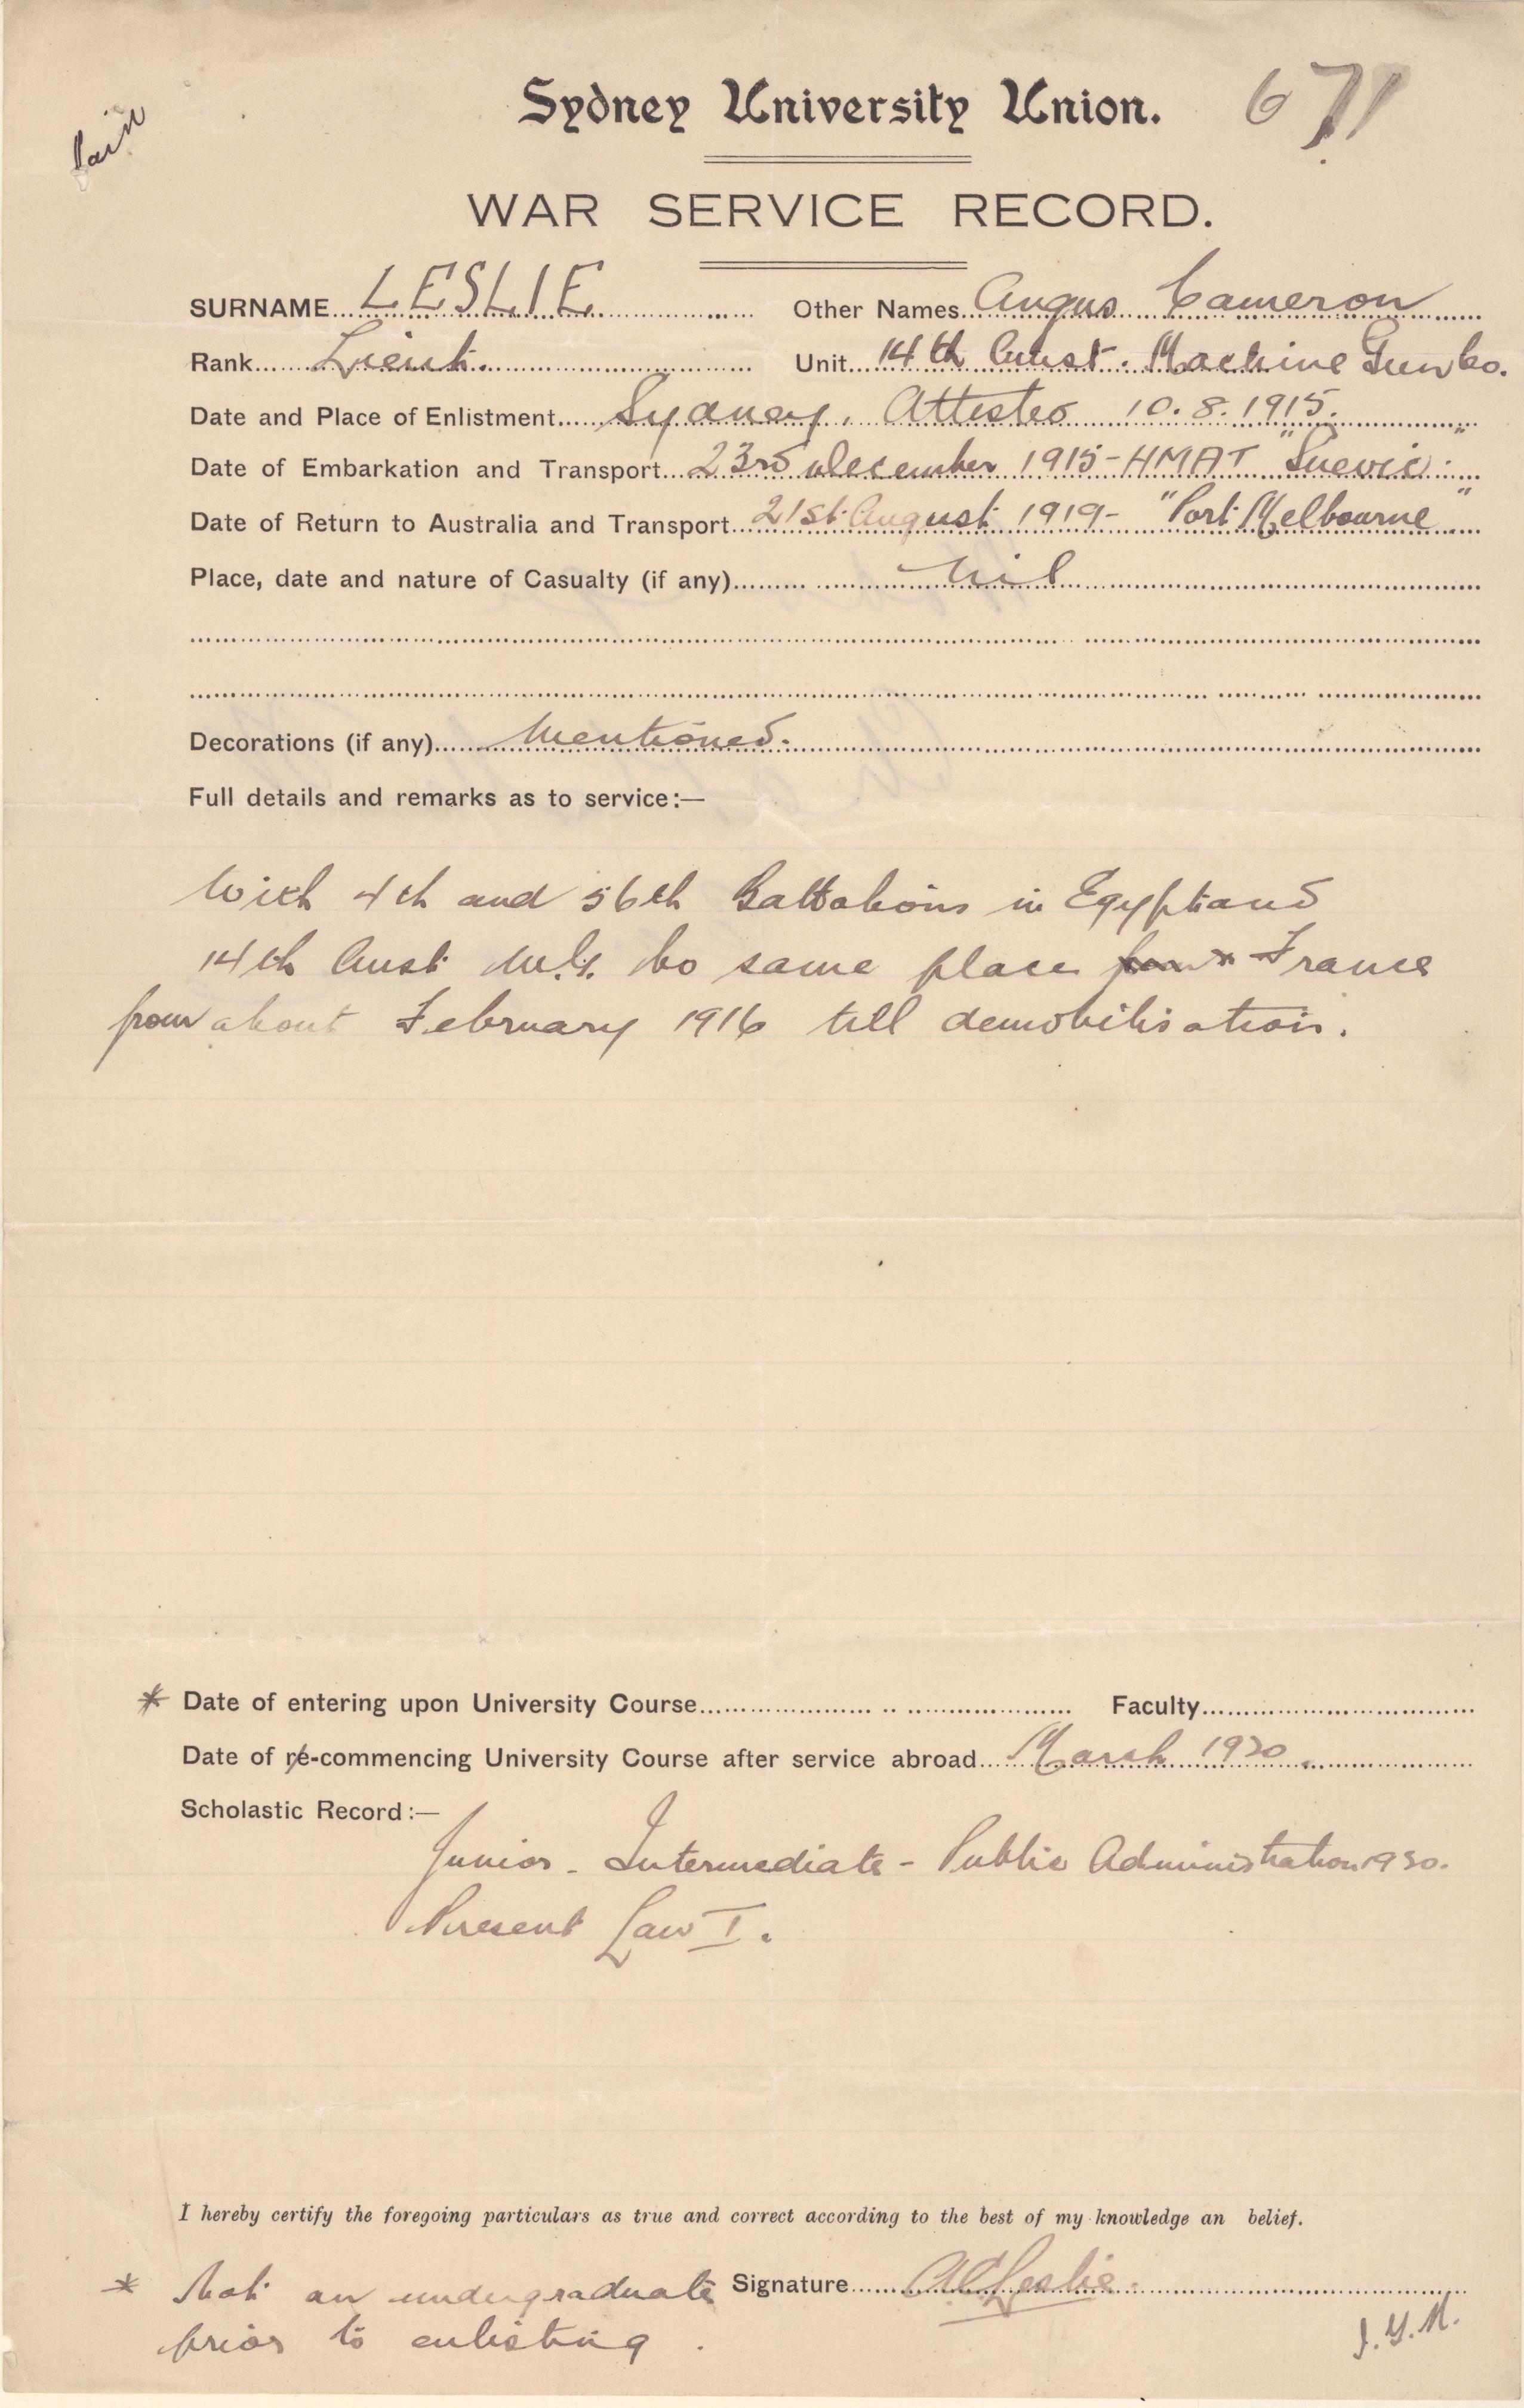 Sydney University Union. 671
WAR SERVICE RECORD.
SURNAME LESLIE Other Names Angus Cameron
Rank Lieut. Unit 14th Aust. Machine Gun Co.
Date and Place of Enlistment Sydney. Attested 10.8.1915.
Date of Embarkation and Transport 23rd December 1915 - HMAT "Suevic."
Date of Return to Australia and Transport 21st August 1919 - "Port Melbourne"
Place, date and nature of Casualty (if any) Nil
Decorations (if any) Mentioned.
Full details and remarks as to service:—
With 4th and 56th Battalions in Egypt and
14th Aust M.G. Co same place & France
from about February 1916 till demobilisation.
* Date of entering upon University Course Faculty
Date of re-commencing University Course after service abroad March 1920.
Scholastic Record:—
Junior - Intermediate - Public Administration 1920.
Present Law I.
I hereby certify the foregoing particulars as true and correct according to the best of my knowledge an belief.
* Not an undergraduate Signature A C Leslie.
prior to enlisting. J.Y.M.